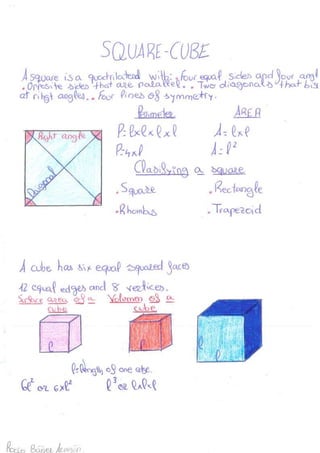 SQUARE-CUBE
A square is a quadrilateral with: . four equal sides and four angl
. Opposite sides that are parallel. . Two diagonals that bis
at right angles. . four lines of symmetry.
Perimeter AREA
Right angle
P: lxlxlxl A = lxl
P=4xl A = l²
Diagonal
Classifying a square
. Square . Rectangle
. Rhombs . Trapezoid
A cube has six equal squared faces
12 equal edges and 8 vertices.
Surface area of a Volumen of a
cube cube
l l l l
l=length of one edge.
6l² or 6xl² l³ or lxlxl